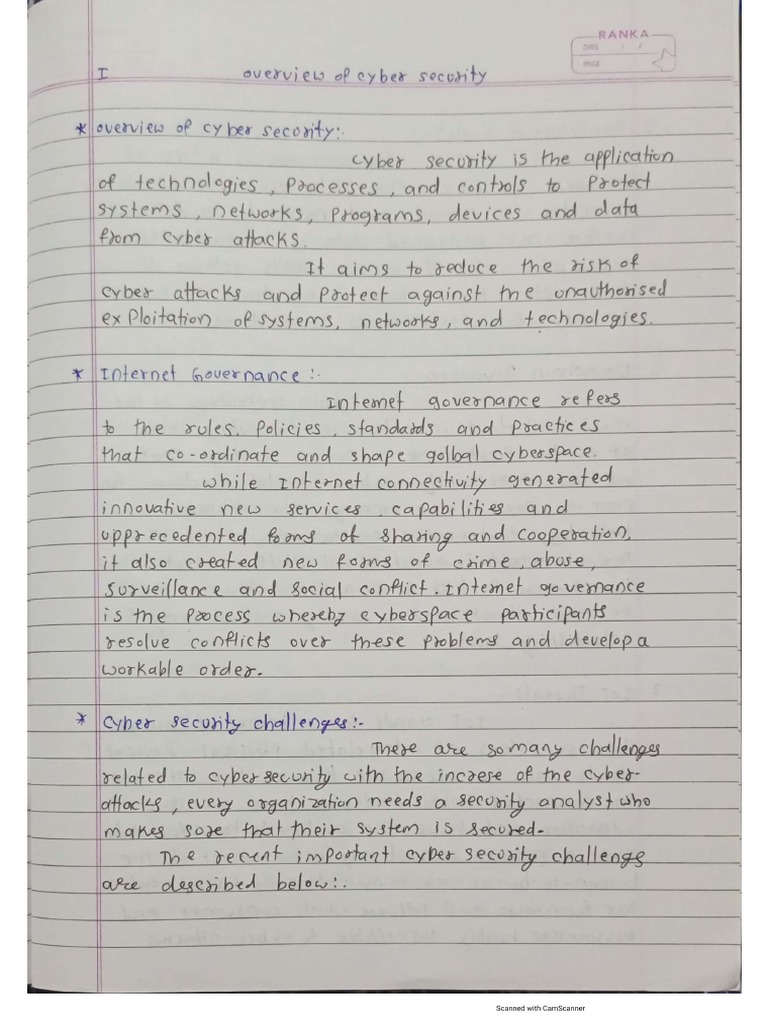 RANKA
DATE / /
PAGE
I overview of cyber security
* overview of cyber security:-
cyber security is the application
of technologies, processes, and controls to protect
systems, networks, programs, devices and data
from cyber attacks.
It aims to reduce the risk of
cyber attacks and protect against the unauthorised
exploitation of systems, networks, and technologies.
* Internet Governance :-
Internet governance refers
to the rules, policies, standards and practices
that co-ordinate and shape golbal cyberspace.
while Internet connectivity generated
innovative new services, capabilities and
upprecedented forms of sharing and cooperation,
it also created new forms of crime, abuse,
surveillance and social conflict. Internet governance
is the process whereby cyberspace participants
resolve conflicts over these problems and develop a
workable order.
* Cyber security challenges:-
There are so many challenges
related to cyber security with the increse of the cyber-
attacks, every organization needs a security analyst who
makes sure that their system is secured.
The recent important cyber security challenge
are described below:-
Scanned with CamScanner